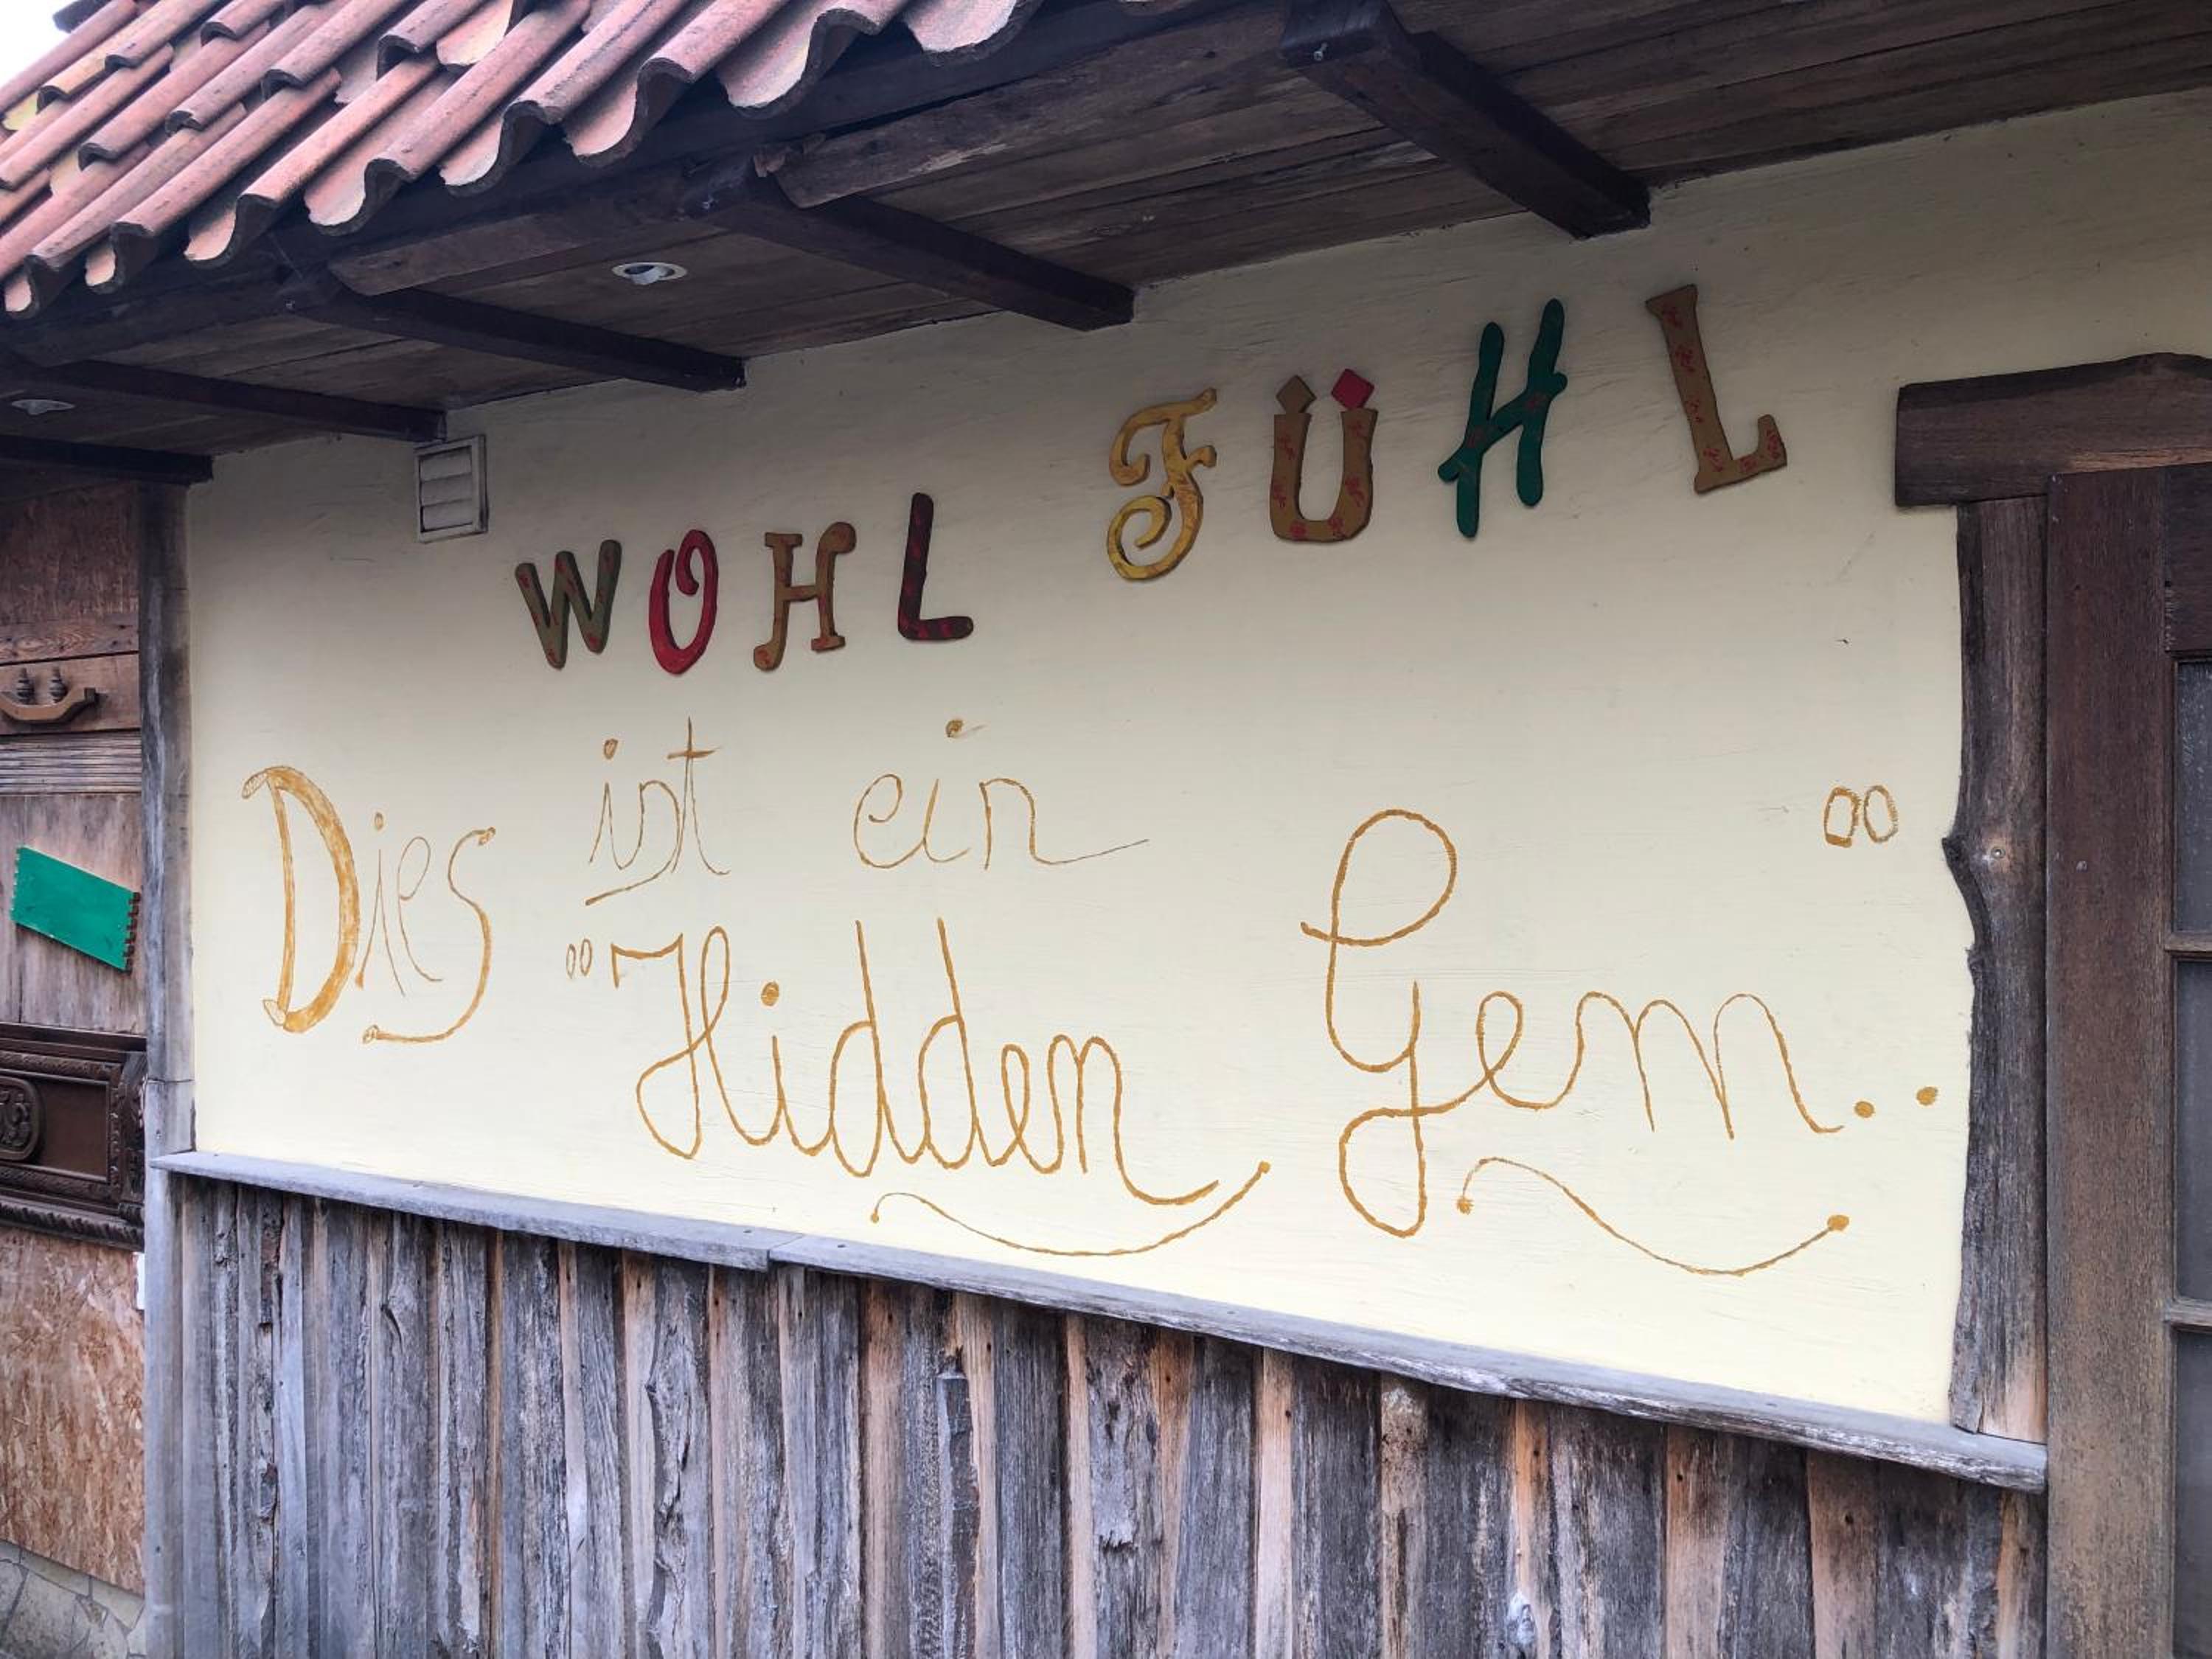 WOHL FÜHL
Dies ist ein
"Hidden Gem.."